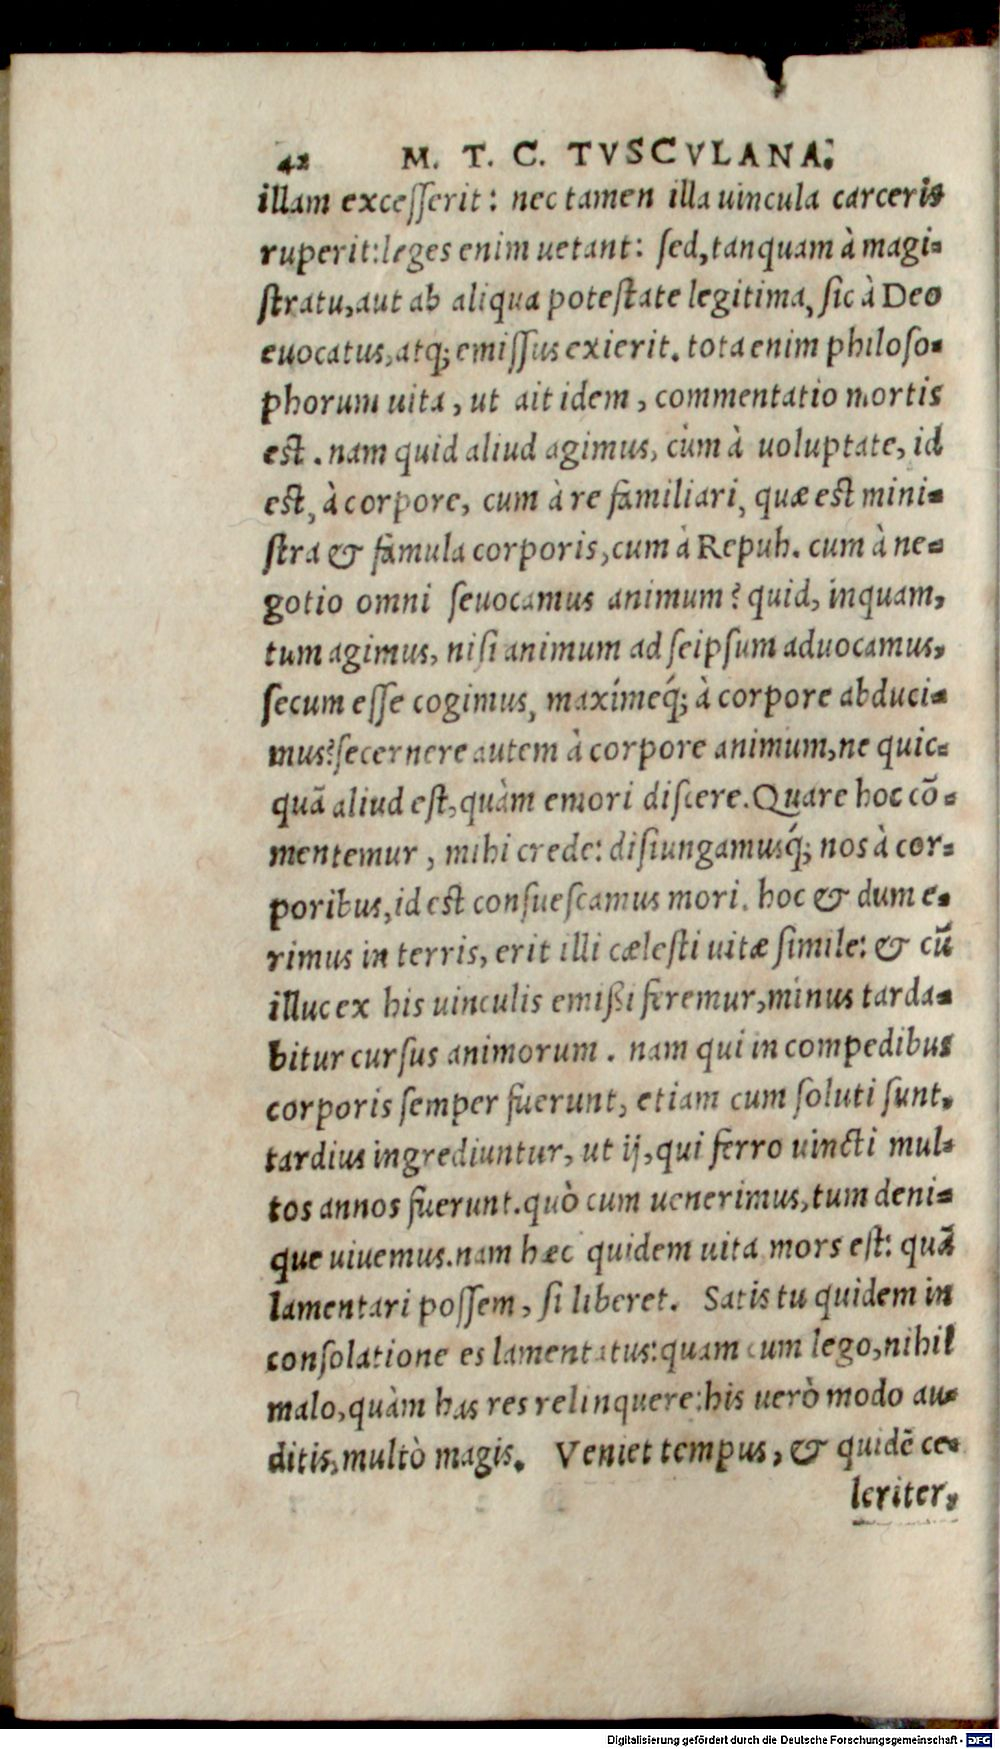 42 M. T. C. TVSCVLANA.
illam excesserit: nec tamen illa uincula carceris
ruperit: leges enim uetant: sed, tanquam à magi-
stratu, aut ab aliqua potestate legitima, sic à Deo
euocatus, atq; emissus exierit. tota enim philoso-
phorum uita, ut ait idem, commentatio mortis
est. nam quid aliud agimus, cùm à uoluptate, id
est, à corpore, cum à re familiari, quæ est mini-
stra & famula corporis, cum à Repub. cum à ne-
gotio omni seuocamus animum? quid, inquam,
tum agimus, nisi animum ad seipsum aduocamus,
secum esse cogimus, maximeq́; à corpore abduci-
mus? secernere autem à corpore animum, ne quic-
quã aliud est, quàm emori discere. Quare hoc cõ-
mentemur, mihi crede: disiungamusq́; nos à cor-
poribus, id est consuescamus mori. hoc & dum e-
rimus in terris, erit illi cælesti uitæ simile: & cũ
illuc ex his uinculis emißi feremur, minus tarda-
bitur cursus animorum. nam qui in compedibus
corporis semper fuerunt, etiam cum soluti sunt,
tardius ingrediuntur, ut ij, qui ferro uincti mul-
tos annos fuerunt. quò cum uenerimus, tum deni-
que uiuemus. nam hæc quidem uita mors est: quã
lamentari possem, si liberet. Satis tu quidem in
consolatione es lamentatus: quam cum lego, nihil
malo, quàm has res relinquere: his uerò modo au-
ditis, multò magis. Veniet tempus, & quidē ce-
leriter,
Digitalisierung gefördert durch die Deutsche Forschungsgemeinschaft - DFG